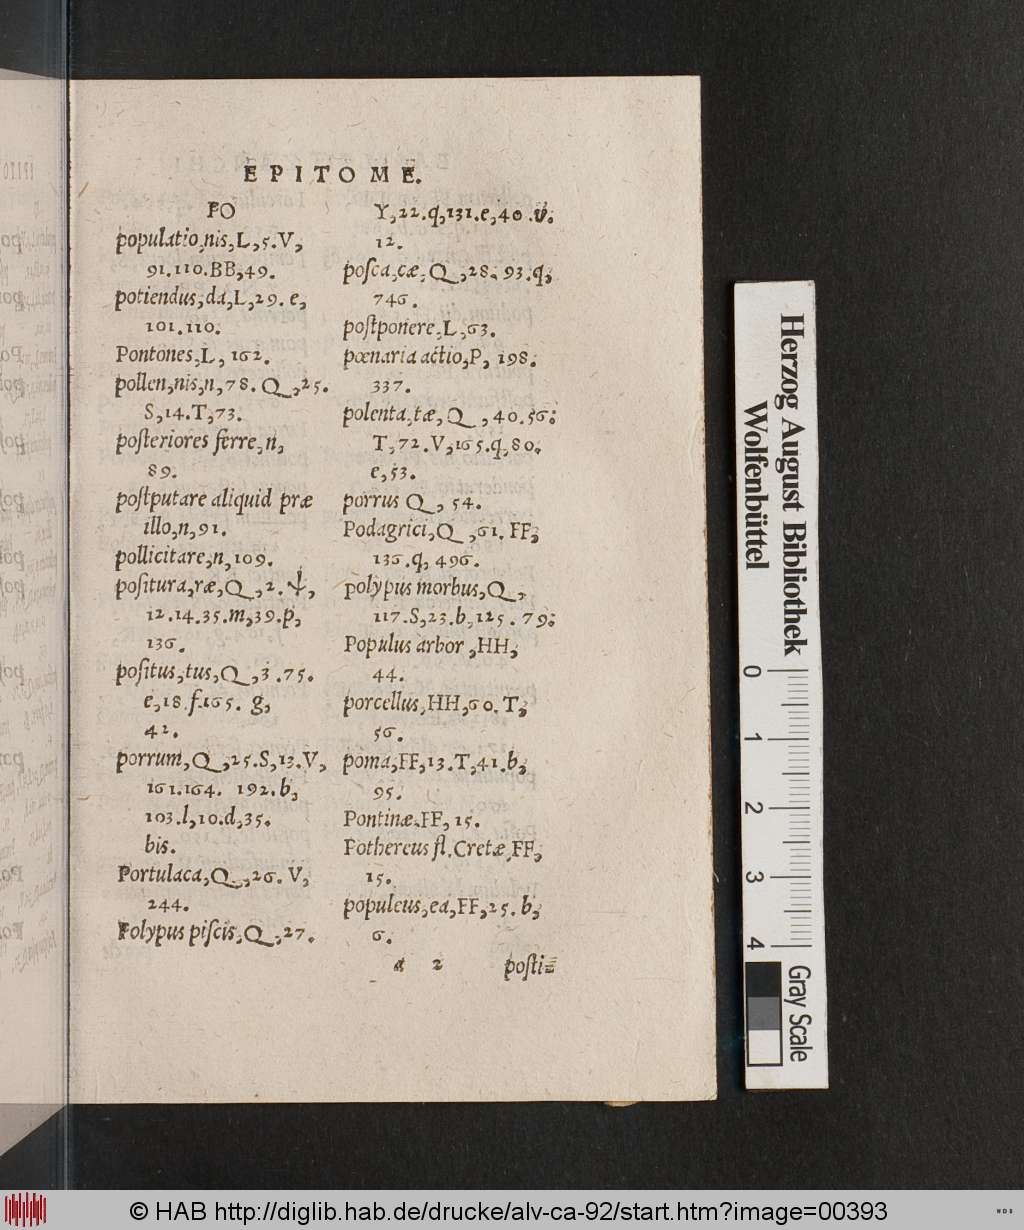 EPITOME.
PO
populatio,nis,L,5.V,
91.110.BB,49.
potiendus,da,L,29.e,
101.110.
Pontones,L, 162.
pollen,nis,n,78. Q,25.
S,14.T,73.
poſteriores ferre,n,
89.
poſtputare aliquid præ
illo,n,91.
pollicitare,n,109.
poſitura,ræ,Q,2.ψ,
12.14.35.m,39.p,
136.
poſitus,tus,Q,3.75.
e,18.f.165. g,
42.
porrum,Q,25.S,13.V,
161.164. 192.b,
103.l,10.d,35.
bis.
Portulaca,Q,26. V,
244.
Polypus piſcis,Q,27.
Y,22.q,131.e,40.v.
12.
poſca,cæ,Q,28.93.q,
746.
poſtponere,L,63.
pœnaria actio,P, 198.
337.
polenta,tæ,Q,40.56.
T,72.V,165.q,80.
e,53.
porrus Q, 54.
Podagrici,Q,61.FF,
136.q,496.
polypus morbus,Q,
117.S,23.b,125.79.
Populus arbor,HH,
44.
porcellus,HH,60.T,
56.
poma,FF,13.T,41.b,
95.
Pontinæ.FF,15.
Pothereus fl.Cretæ,FF,
15.
populeus,ea,FF,25.b,
6.
a 2 poſti-
Herzog August Bibliothek
Wolfenbüttel
0 1 2 3 4
Gray Scale
© HAB http://diglib.hab.de/drucke/alv-ca-92/start.htm?image=00393